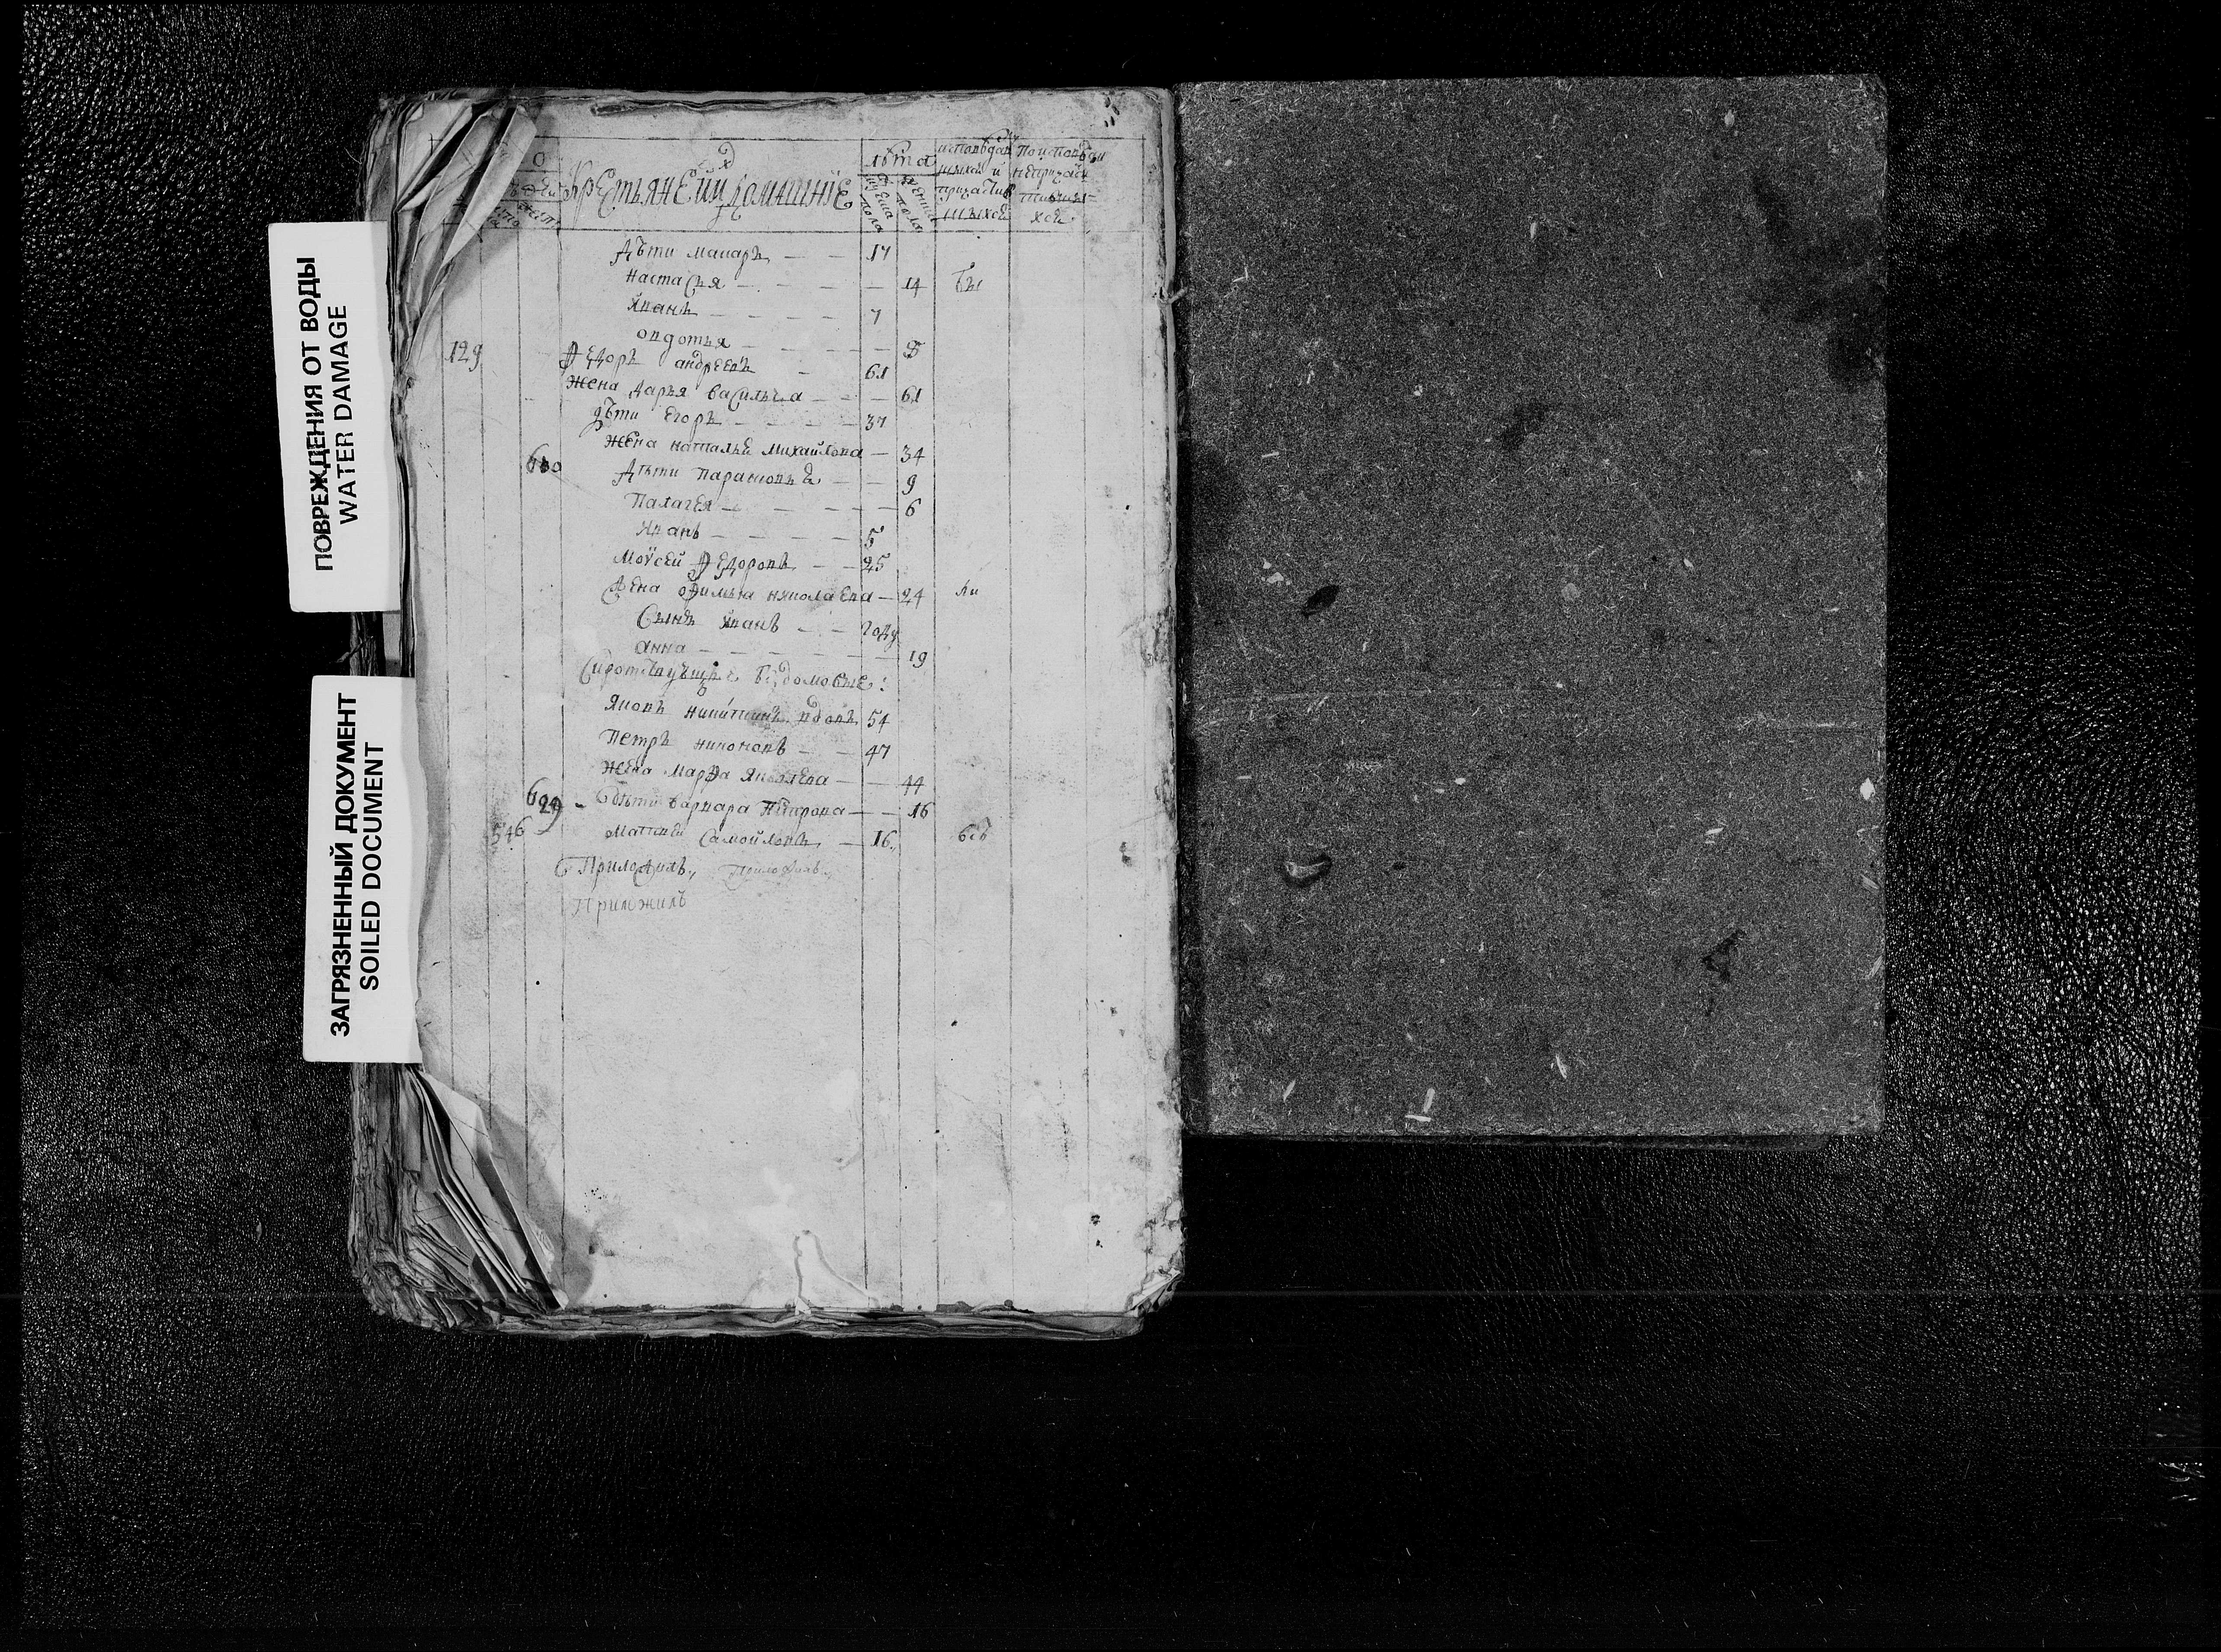 ПОВРЕЖДЕНИЯ ОТ ВОДЫ
WATER DAMAGE
ЗАГРЯЗНЕННЫЙ ДОКУМЕНТ
SOILED DOCUMENT
Крестьяне и их домашніе
лѣта
мужеска пола
женска пола
Дѣти Макаръ 17
Настасья 14 бы
Иванъ 7
овдотья 8
129 Ѳедоръ андреевъ 61
Жена дарья васильева 61
дѣти Егоръ 37
Жена наталья михайлова 34
Дѣти парасковья 9
Палагея 6
Иванъ 5
Моѵсей Ѳедоровъ 25
Жена николаева 24 ли
Сынъ иванъ году
анна 19
Яковъ никитинъ вдовъ 54
Петръ никоновъ 47
Жена марѳа яковлева 44
629 дѣти варвара Петрова 16
546 матвей Самойловъ 16 всѣ
Приложилъ приложилъ
Приложилъ